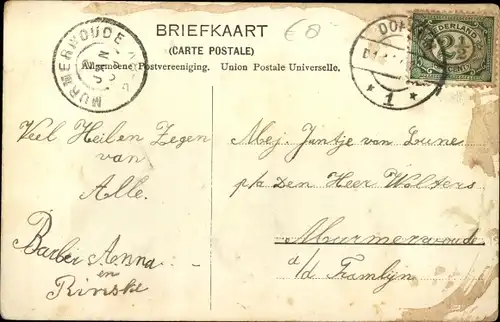 BRIEFKAART
(CARTE POSTALE)
Algemeene Postvereeniging. Union Postale Universelle.
MURMERWOUDE
DOK
1
NEDERLAND
2½
€8
Veel Heil en Zegen
van
Alle.
Barber Anna
en
Rinske
Mej. Jantje van Lune
p/a den Heer Wolters
Murmerwoude
a/d Tramlijn